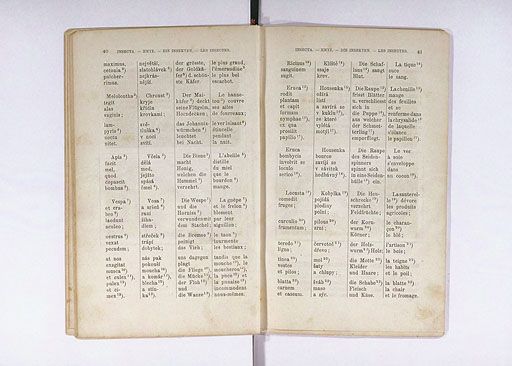 40 INSECTA. — HMYZ. — DIE INSEKTEN. — LES INSECTES.
maximus, největší, der grösste, le plus grand,
cetonia zlatohlávek der Goldkä- l'émeraudine
pulcher- nejkrás- fer d. schön- le plus bel
rima. nější. ste Käfer. escarbot.
Melolontha Chroust Der Mai- Le hanne-
tegit kryje käfer deckt ton couvre
alas křídla seine Flügel m. ses ailes
vaginis; krovkami; Horndecken; de fourreaux;
lam- svě- das Johannis- le ver luisant
pyris tluška würmchen étincelle
noctu v noci leuchtet pendant
nitet. svítí. bei Nacht. la nuit.
Apis Včela Die Biene L'abeille
facit dělá macht distille
mel, med, Honig, du miel
quod jejžto welchen die que le
depascit spásá Hummel bourdon
bombus čmel verzehrt. mange.
Vespa Vosa Die Wespe La guêpe
et cra- a sršeň und die et le frelon
bro raní Horniss blessent
laedunt žiha- verwunden m. par leur
aculeo; dlem; dem Stachel; aiguillon;
oestrus střeček die Bremse le taon
vexat trápí peinigt tourmente
pecudem; dobytek; das Vieh; les bestiaux;
et nos nás pak uns dagegen tandis que la
exagitat pokouší plagt mouche, le
musca moucha die Fliege moucheron,
et culex a komár die Mücke la puce et
pulex blecha der Floh la punaise
et ci- a stín- und incommodent
mex ka die Wanze nous-mêmes.
INSECTA. — HMYZ. — DIE INSEKTEN. — LES INSECTES. 41
Ricinus Klíště Die Schaf- La tique
sanguinem ssaje laus saugt suce
sugit. krev. Blut. le sang.
Eruca Housenka Die Raupe La chenille
rodit ožírá frisst Blätter mange
plantam listí u. verschliesst des feuilles
et capit a zavírá se sich in et se
formam v kuklu die Puppe renferme dans
nymphae ze které aus welcher la chrysalide
ex qua vylétá der Schmet- de laquelle
prosilit motýl terling s'élance
papilio empor fliegt. le papillon
Eruca Housenka Die Raupe Le ver
bombycis bource des Seiden- à soie
involvit se zavíjí se spinners s'enveloppe
loculo v závitek spinnt sich dans
serico hedbavný in eine Seiden- un cocon.
hülle ein.
Locusta Kobylka Die Heu- La sauterel-
comedit pojídá schrecke le dévore
fruges; plodiny verzehrt les produits
polní; Feldfrüchte; agricoles;
curculio pilous der Korn- le charan-
frumentum; zrní; wurm çon
Körner; le blé;
teredo červotoč der Holz- l'artison
ligna; dřevo; wurm Holz; le bois;
tinea mol die Motte la teigne
vestes šaty Kleider les habits
et pilos; a chlupy; und Haare; et le poil;
blatta šváb die Schabe la blatte
carnem maso Fleisch la chair
et caseum. a sýr. und Käse. et le fromage.